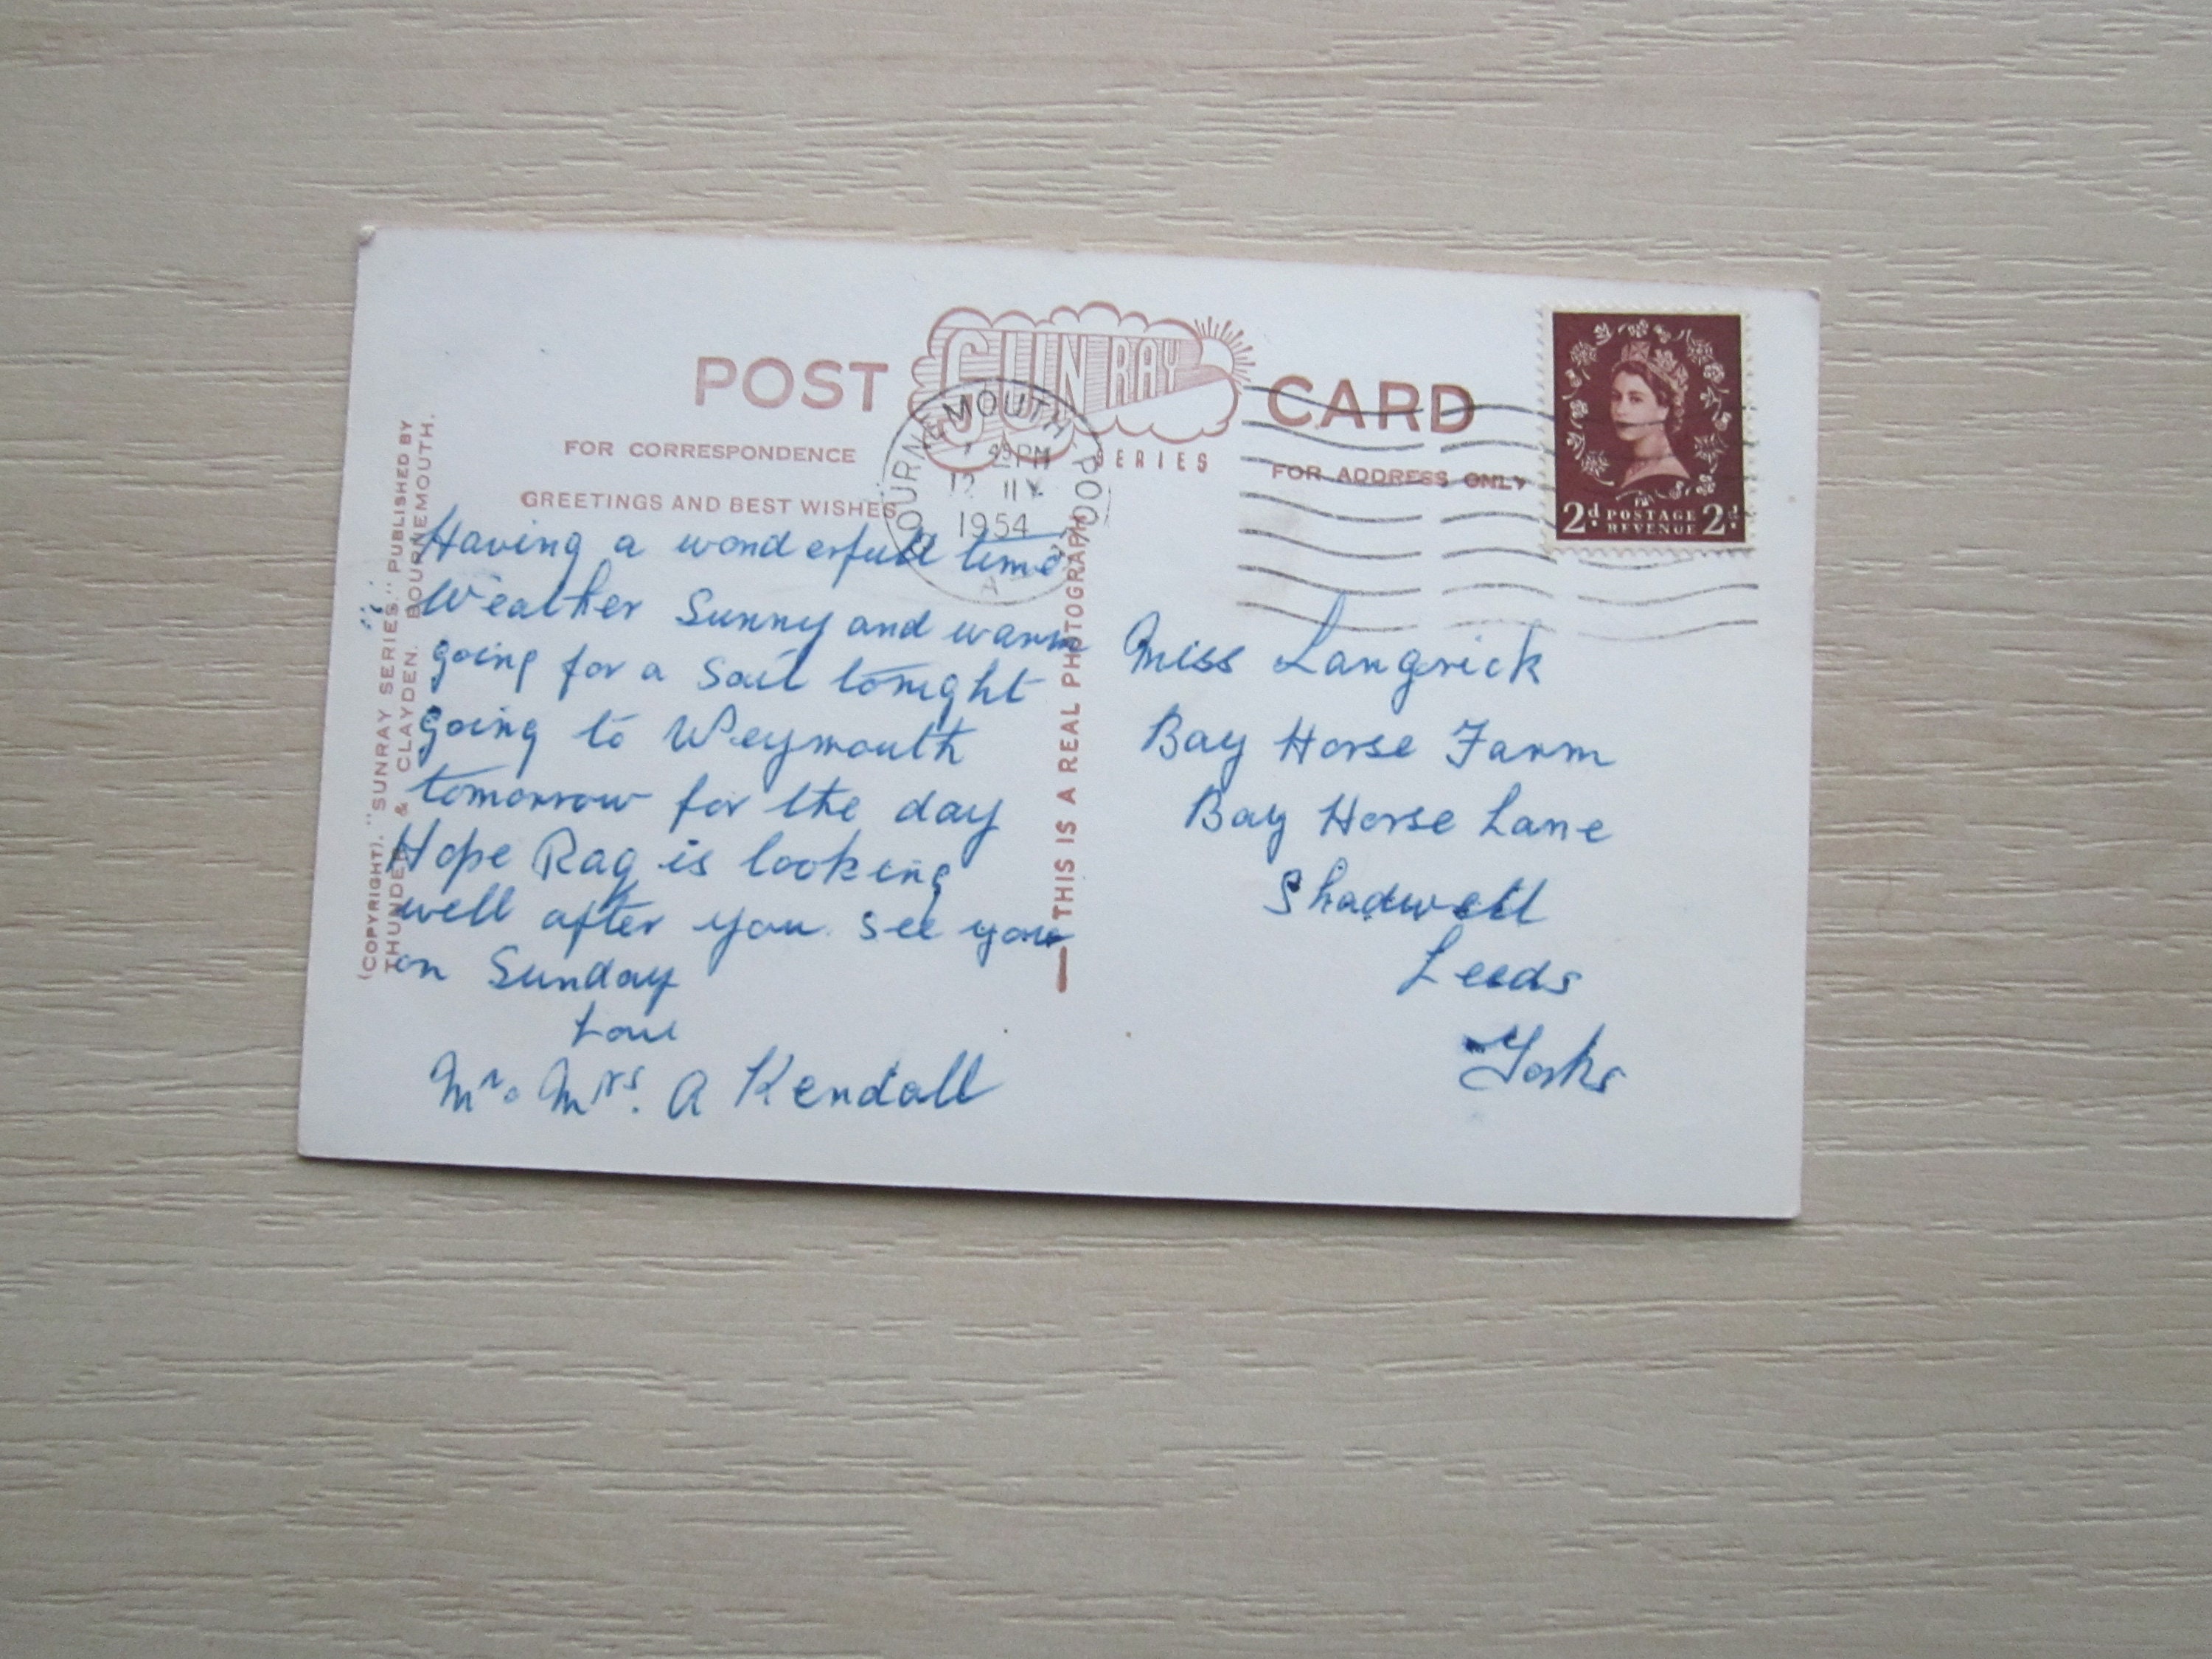 POST SUN RAY CARD
SERIES
FOR CORRESPONDENCE
FOR ADDRESS ONLY
GREETINGS AND BEST WISHES
BOURNEMOUTH POOLE
PM
12
1954
A
2d POSTAGE 2d
REVENUE
(COPYRIGHT). "SUNRAY SERIES." PUBLISHED BY
THUNDER & CLAYDEN. BOURNEMOUTH.
THIS IS A REAL PHOTOGRAPH
Having a wonderfull time
Weather Sunny and warm
going for a Sail tonight
going to Weymouth
tomorrow for the day
Hope Rag is looking
well after you. See you
on Sunday
Love
Mr. Mrs. A Kendall
Miss Langrick
Bay Horse Farm
Bay Horse Lane
Shadwell
Leeds
Yorks